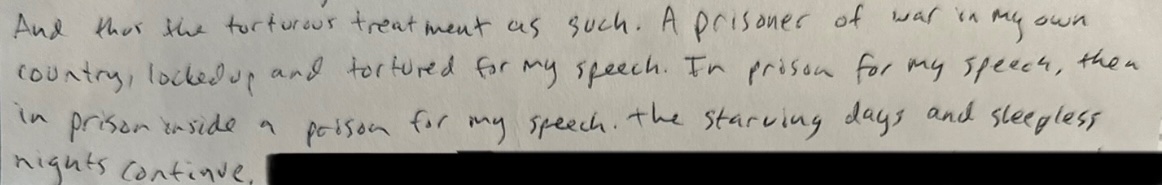 And thus the torturous treatment as such. A prisoner of war in my own
country, locked up and tortured for my speech. In prison for my speech, then
in prison inside a prison for my speech. the starving days and sleepless
nights continue.